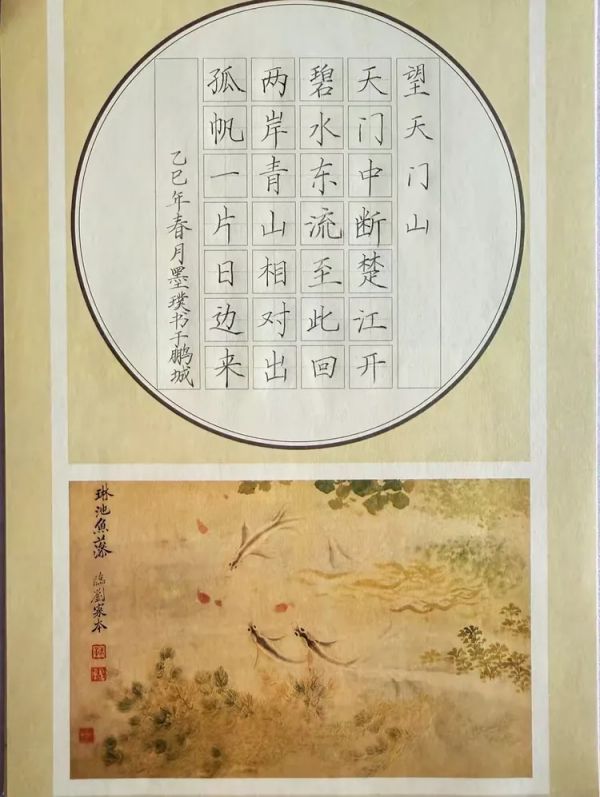 望天门山
天门中断楚江开
碧水东流至此回
两岸青山相对出
孤帆一片日边来
乙巳年春月墨璞书于鹏城
琳池魚藻
臨劉寀本